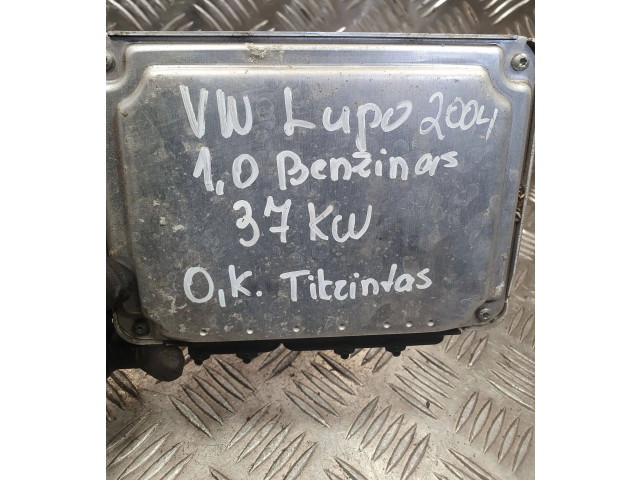 VW Lupo 2004
1,0 Benzinas
37 KW
O,K. Tikrintas